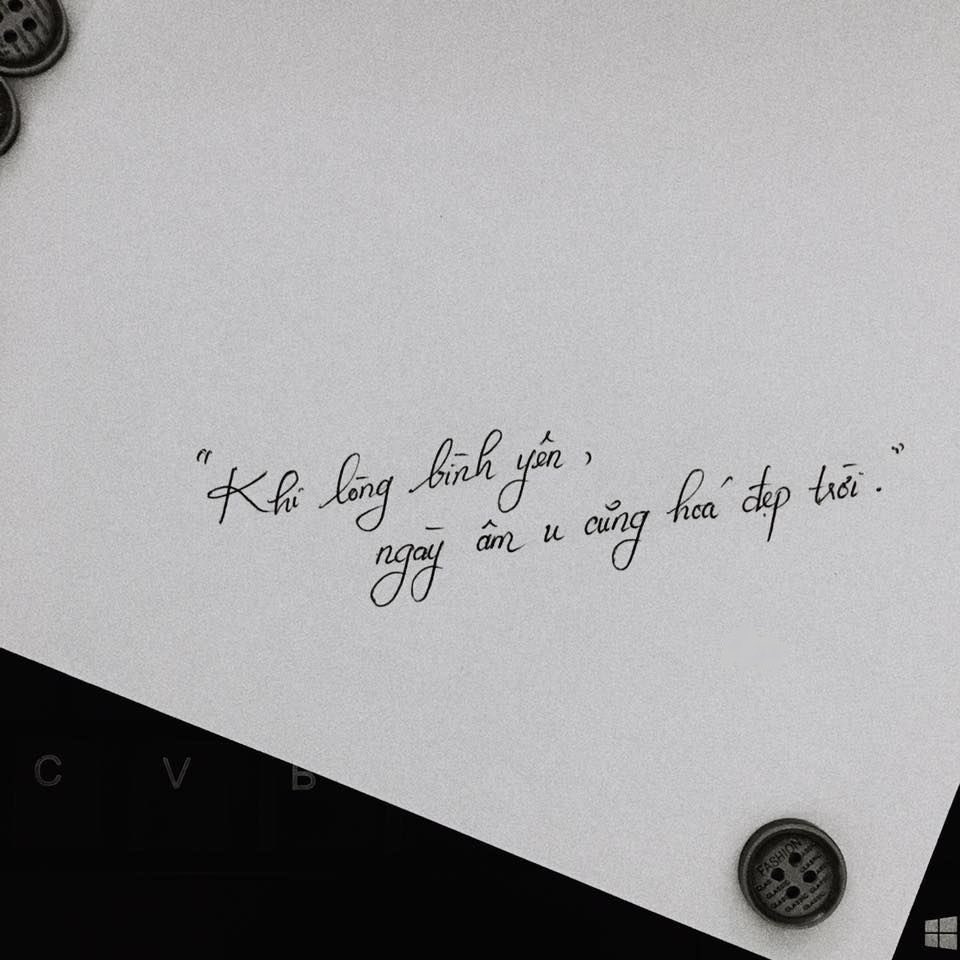 “Khi lòng bình yên,
ngày âm u cũng hoá đẹp trời.”
C V B
FASHION
CLASSIC CLASSIC CLASSIC CLASSIC